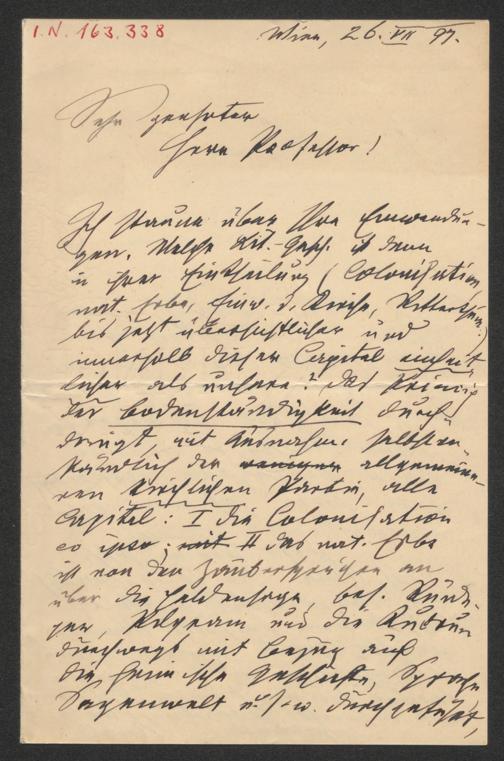 I.N. 163.338
Wien, 26. VII 97.
Sehr geehrter
Herr Professor!
Ich staune über Ihre Einwendun-
gen. Welche Lit.-Gesch. ist denn
in ihrer Eintheilung (Colonisation,
nat. Erbe, Einw. d. Kirche, Ritterthum)
bis jetzt übersichtlicher und
innerhalb dieser Capitel einheit
licher als unsere? Das Princip
der Bodenständigkeit durch
dringt, mit Ausnahme selbstver
ständlich der weniger allgemeine-
ren kirchlichen Partie, alle
Capitel: I die Colonisation
eo ipso; mit II das nat. Erbe
ist von den Zaubersprüchen an
über die Heldensage, bes. Rüdi-
ger, Pilgram und die Kudrun
durchwegs mit Bezug auf
die heimische Geschichte, Sprache
Sagenwelt u. s. w. durchgeführt,